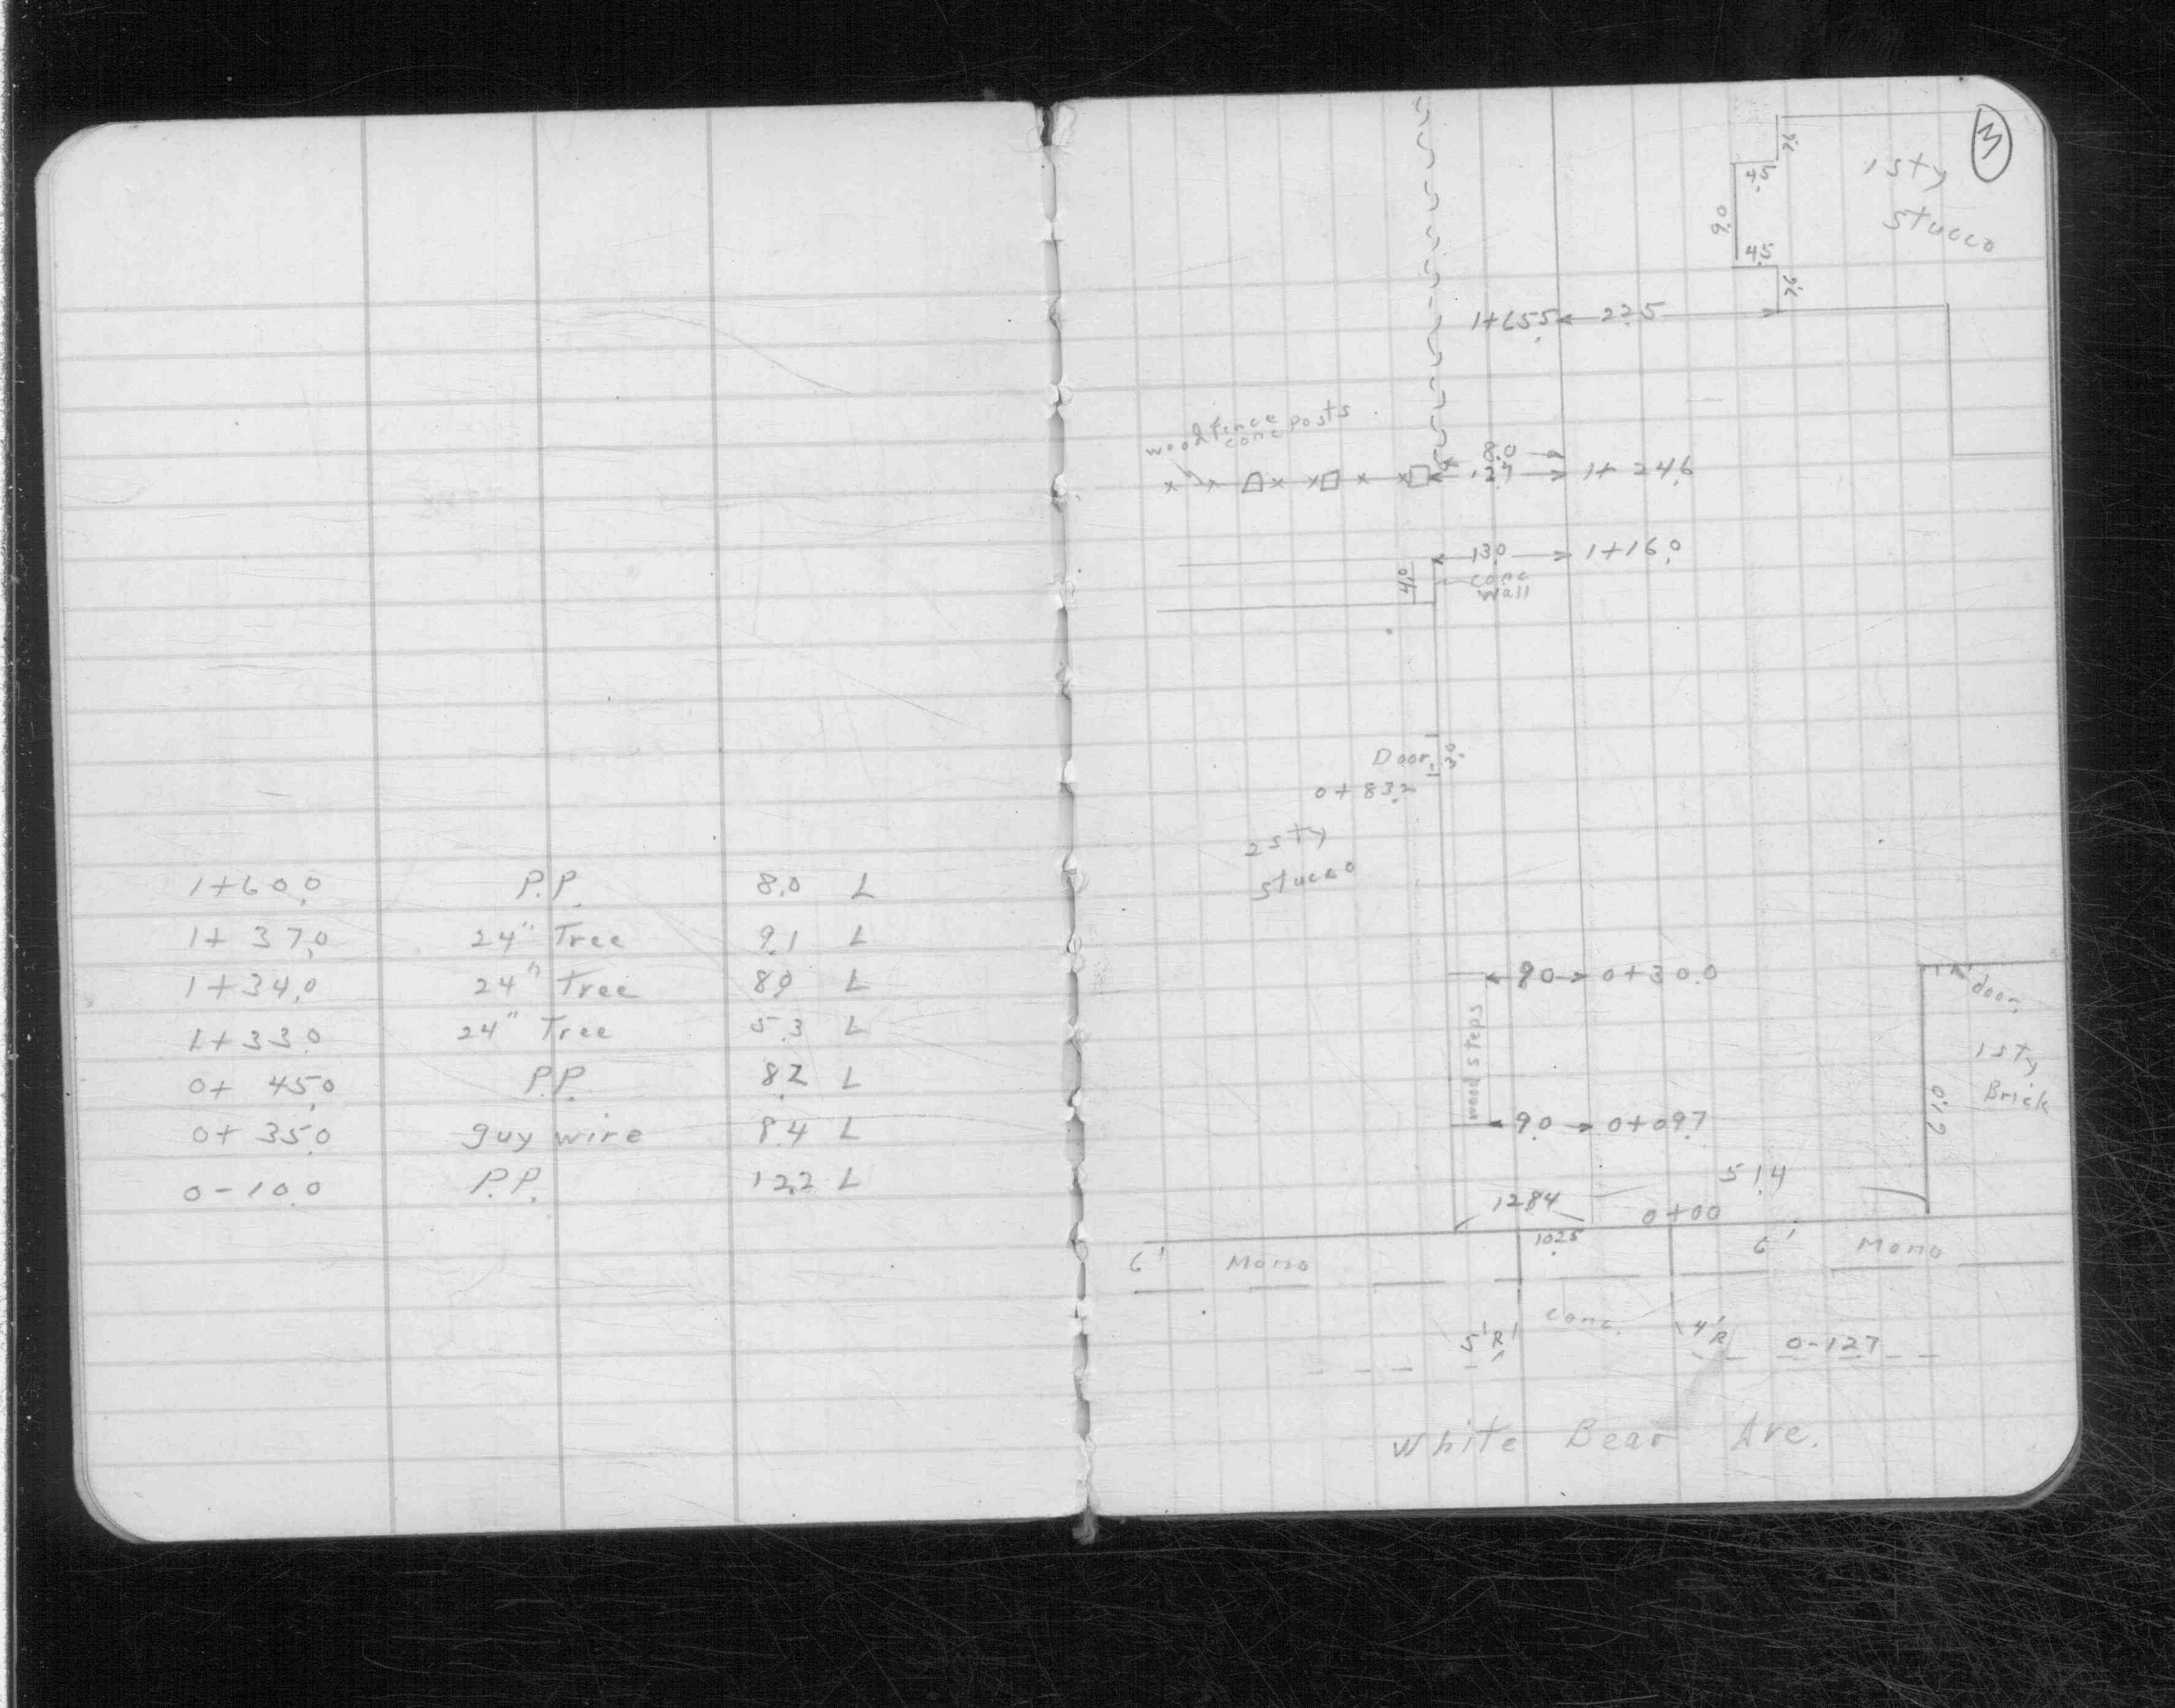 1+60.0 P.P. 8.0 L
1+37.0 24" Tree 9.1 L
1+34.0 24" Tree 8.9 L
1+33.0 24" Tree 5.3 L
0+45.0 P.P. 8.2 L
0+35.0 guy wire 8.4 L
0-10.0 P.P. 12.2 L
3
7.6
1 sty
4.5
stucco
9.0
4.5
7.6
1+65.5 22.5
wood fence
conc posts
8.0
12.9 1+24.6
13.0 1+16.0
4.0
conc
wall
Door 3.0
0+83.2
2 sty
stucco
9.0 0+30.0
door
wood steps
1 sty
Brick
9.0 0+09.7
51.4
12.84
0+00
10.25
6' Mono 6' Mono
conc.
5'R 4'R 0-12.7
White Bear Ave.